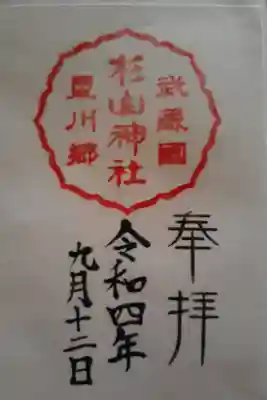 武蔵國
杉山神社
星川郷
奉拝
令和四年
九月十二日